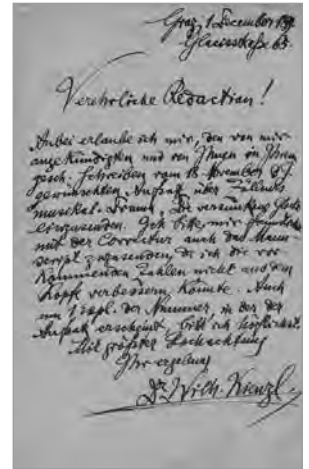 Graz, 1 December 189
Glacisstraße 63.
Verehrliche Redaction!
Anbei erlaube ich mir, den von mir
angekündigten und von Ihnen in Ihrem
gesch. Schreiben vom 18. November d. J.
gewünschten Aufsatz über Zöllners
musikal. Drama „Die versunkene Glocke
einzusenden. Ich bitte, mir
mit der Correctur auch das Manu-
script zuzusenden, da ich die vor-
kommenden Zahlen nicht aus dem
Kopf verbessern könnte. Auch
um 1 Expl. der Nummer, in der der
Aufsatz erscheint, bitt ich höflichst.
Mit größter Hochachtung
Ihr ergebener
Dr. Wilh. Kienzl.